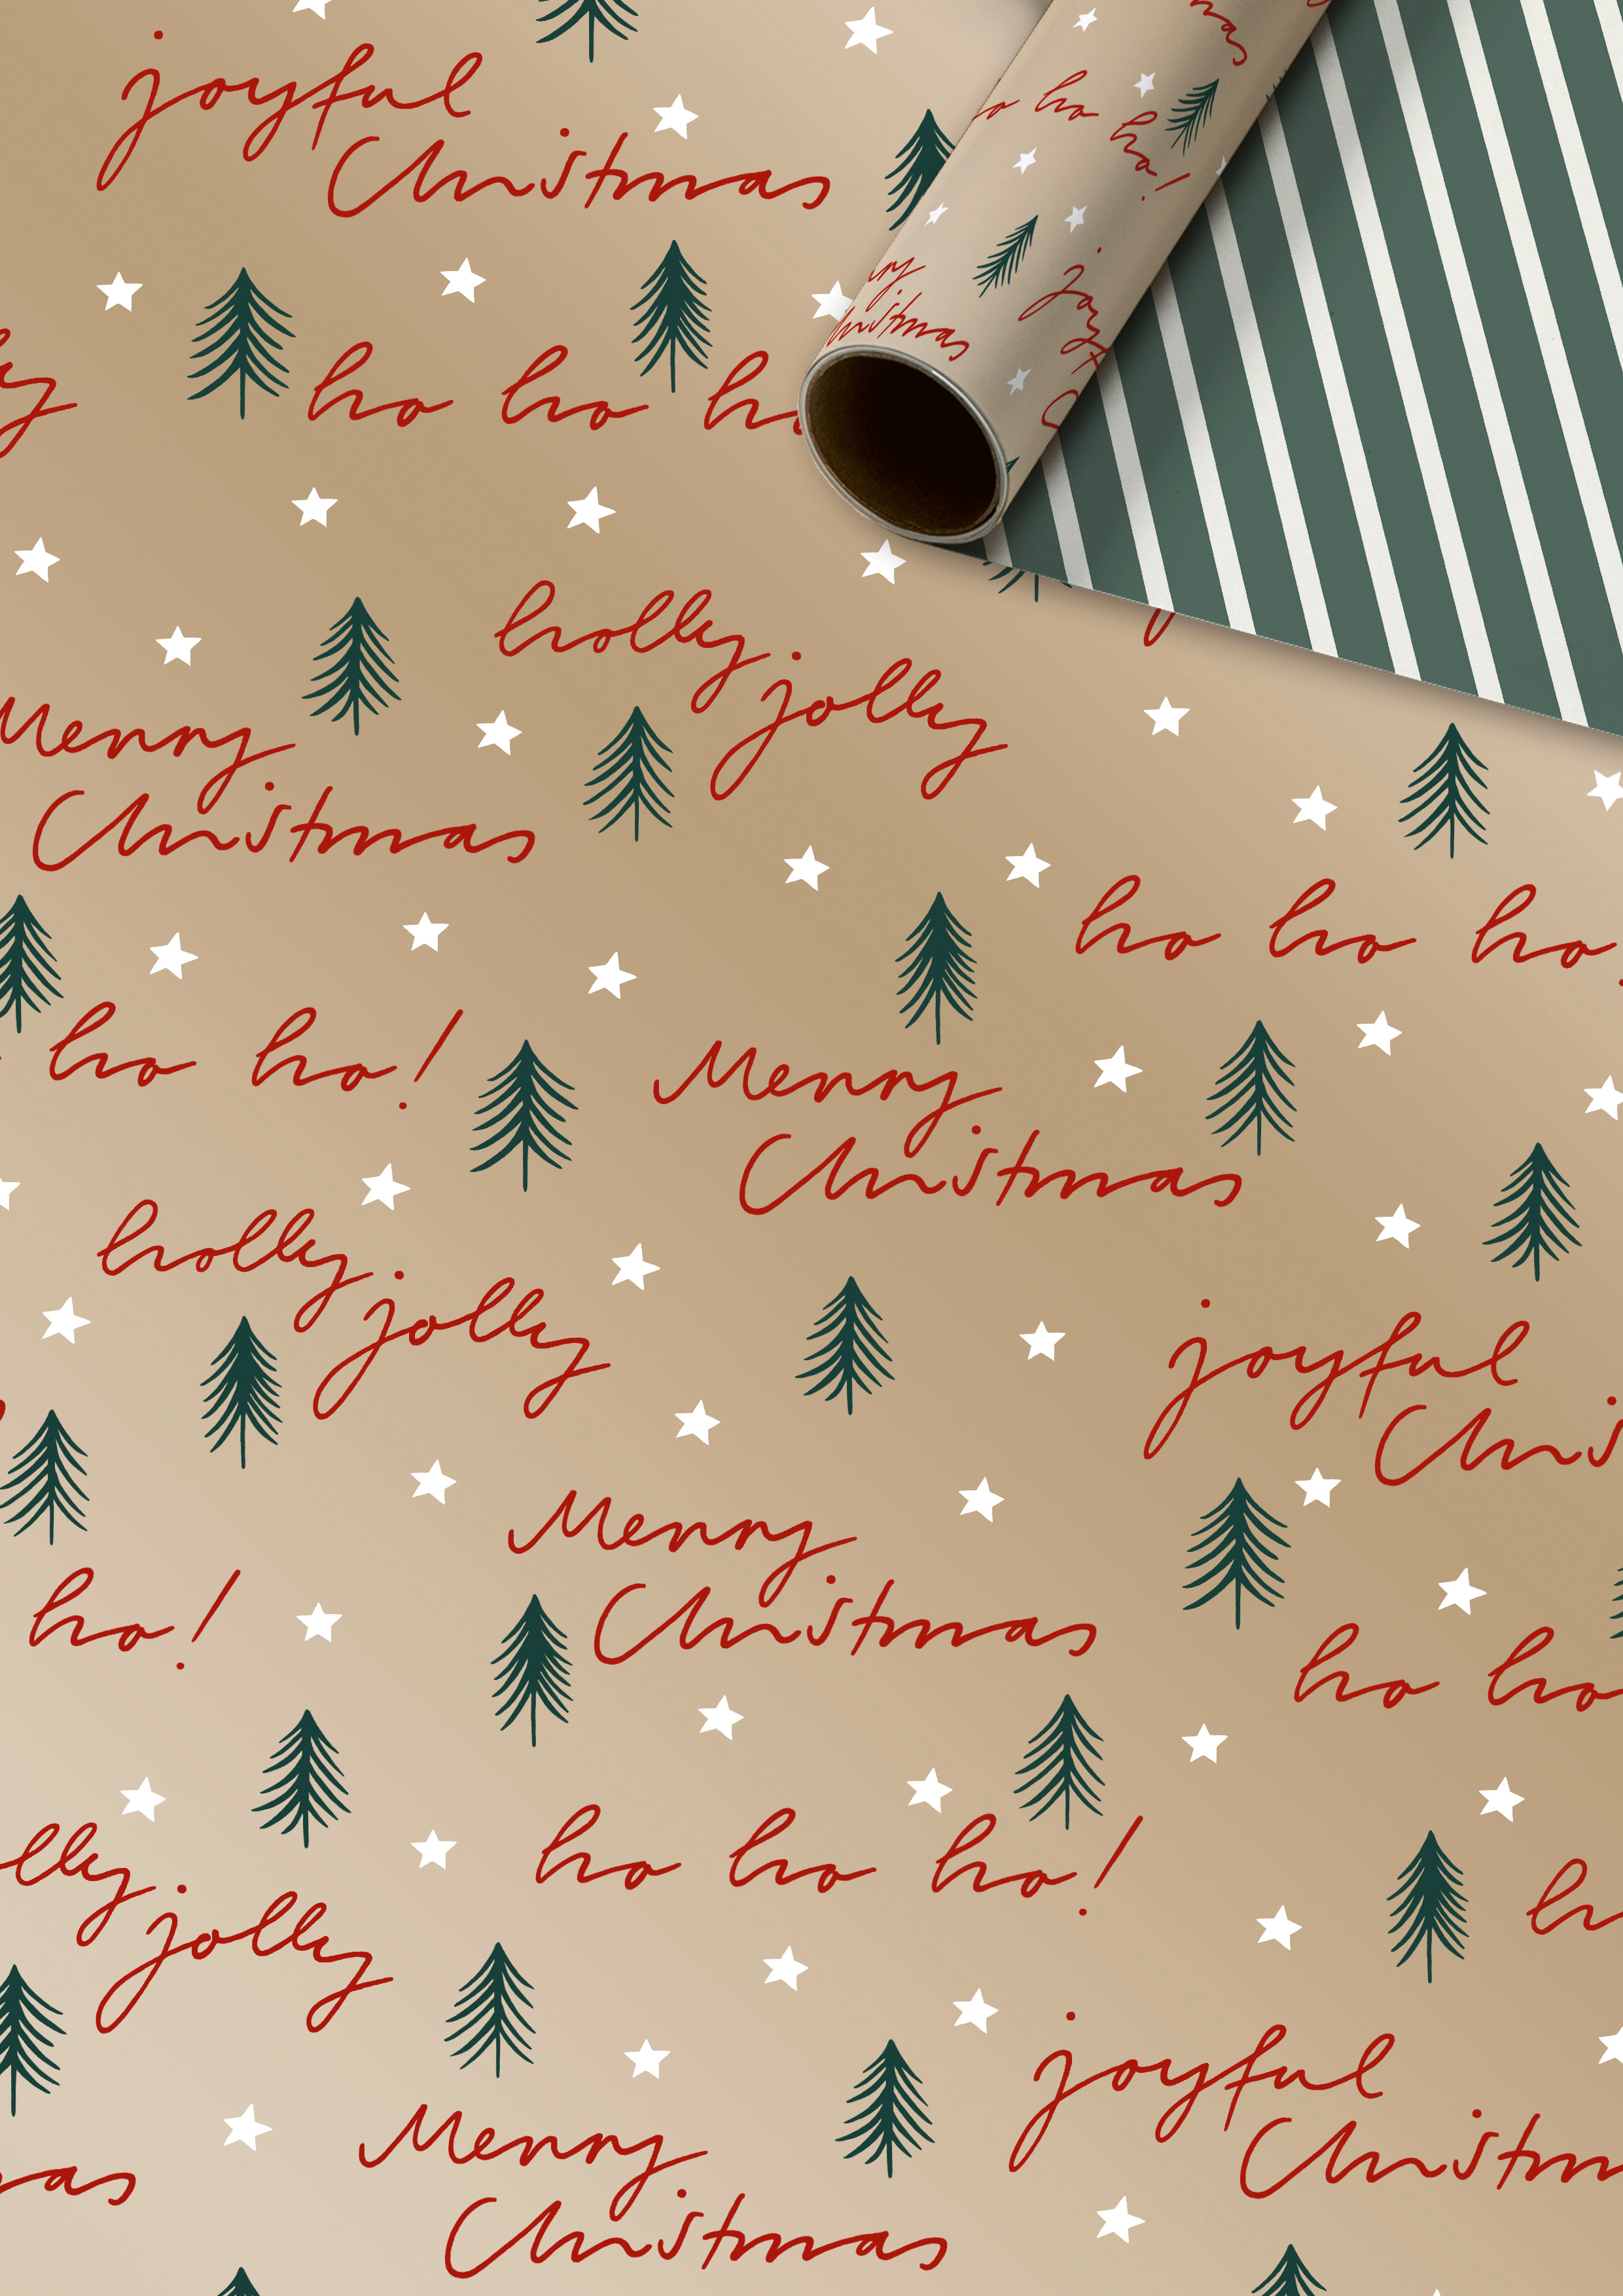 joyful
Christmas
ho ho ho
ho ho ho!
Christmas
joyf
holly
jolly
Merry
Christmas
ho ho ho
ho ho!
Merry
Christmas
holly
jolly
joyful
Chris
Merry
Christmas
ho!
ho ho
ho ho ho!
lly
jolly
joyful
Christm
Merry
Christmas
as